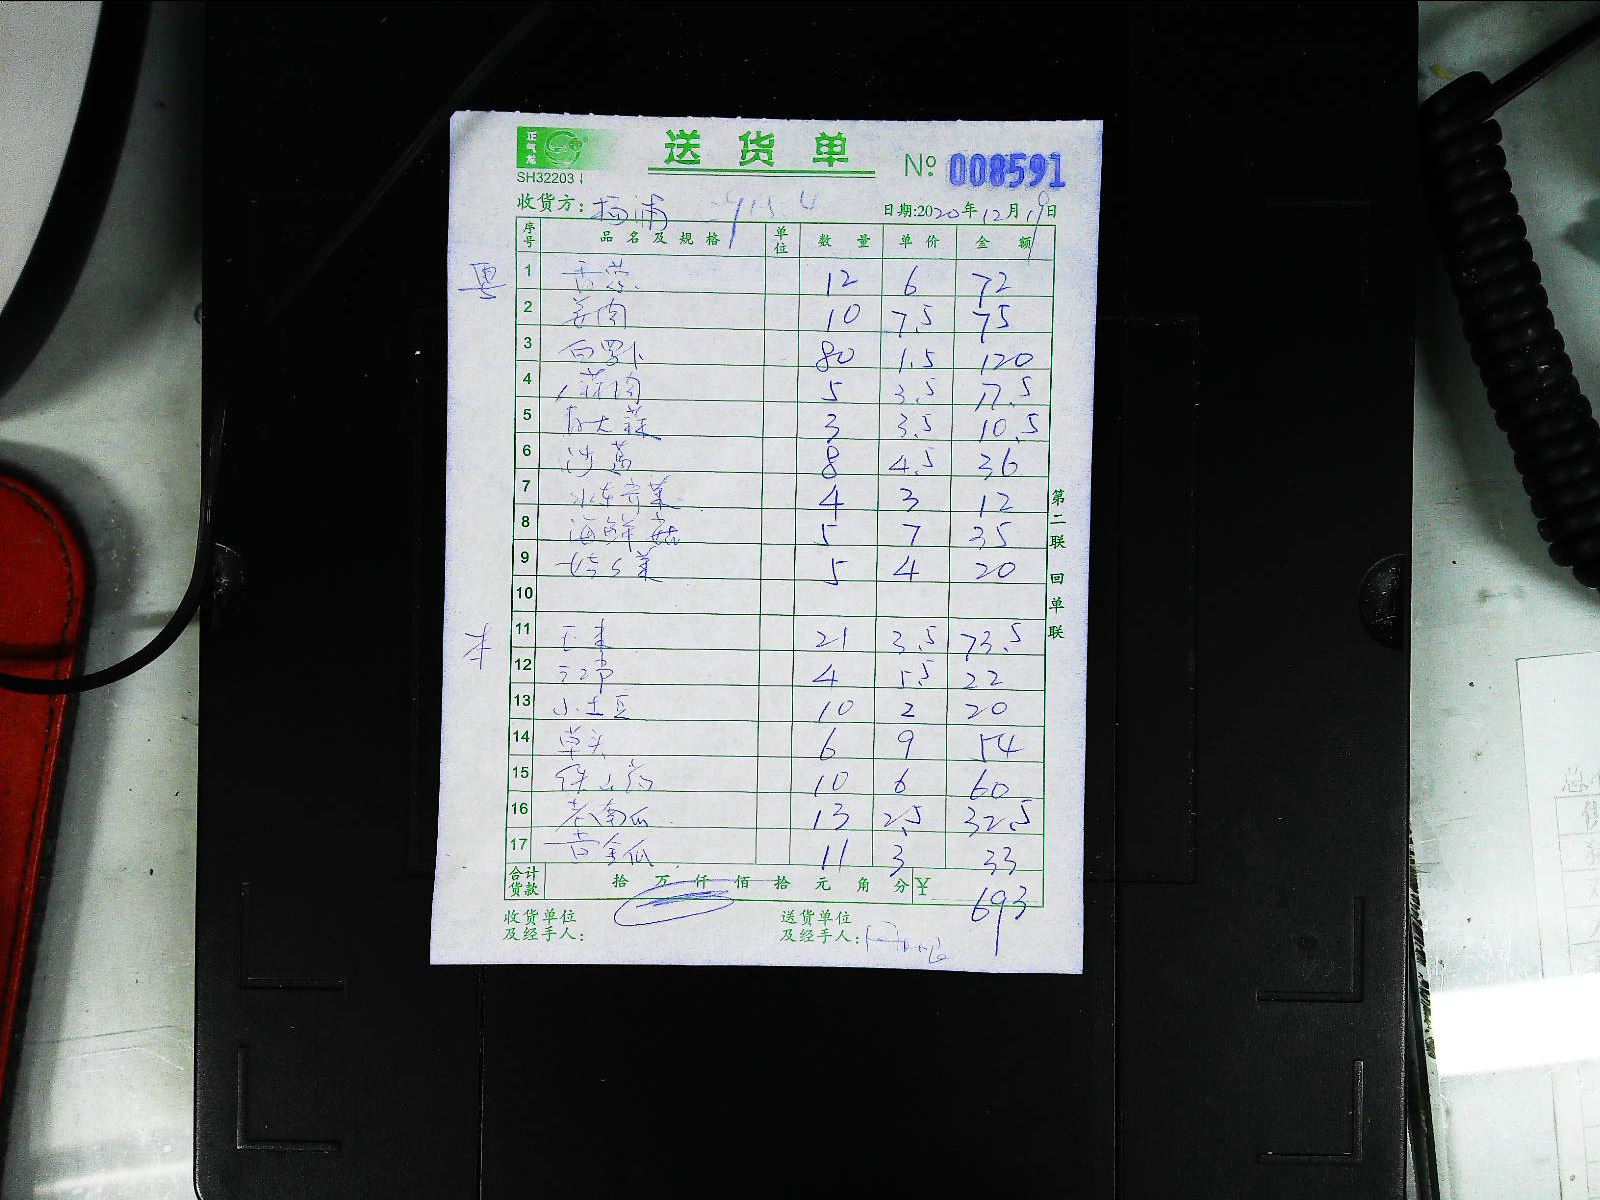 正气龙
送货单
SH32203
№ 008591
收货方: 杨浦
日期:2020年12月19日
序号 品名及规格 单位 数量 单价 金额
粤
1 香菜 12 6 72
2 姜肉 10 7.5 75
3 白罗卜 80 1.5 120
4 蒜肉 5 3.5 17.5
5 大蒜 3 3.5 10.5
6 沙葛 8 4.5 36
7 水东芥菜 4 3 12
8 海鲜菇 5 7 35
9 菜 5 4 20
10
本
11 玉米 21 3.5 73.5
12 4 5.5 22
13 小土豆 10 2 20
14 草头 6 9 54
15 铁山药 10 6 60
16 老南瓜 13 2.5 32.5
17 黄金瓜 11 3 33
合计货款 拾 万 仟 佰 拾 元 角 分 ¥ 693
收货单位及经手人:
送货单位及经手人:
第二联 回单联